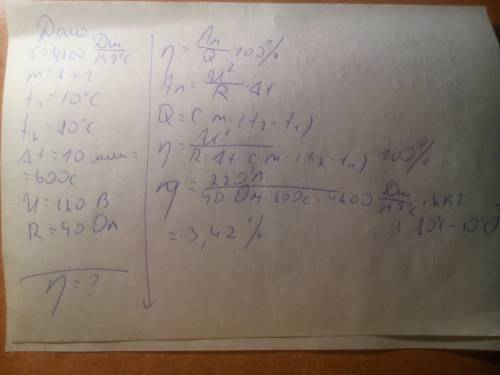 Дано
c=4200 Дж/кг°C
m=1 кг
t₁=10°C
t₂=80°C
Δt=10 мин=
=600с
U=220 В
R=40 Ом
η=?
η = Aп/Q · 100%
Aп = U²/R · Δt
Q = c m · (t₂-t₁)
η = U²/R·Δt·c·m·(t₂-t₁) · 100%
η = 220²В/40 Ом·600с·4200 Дж/кг°C · 1кг·
(80°C-10°C)
= 3,42%